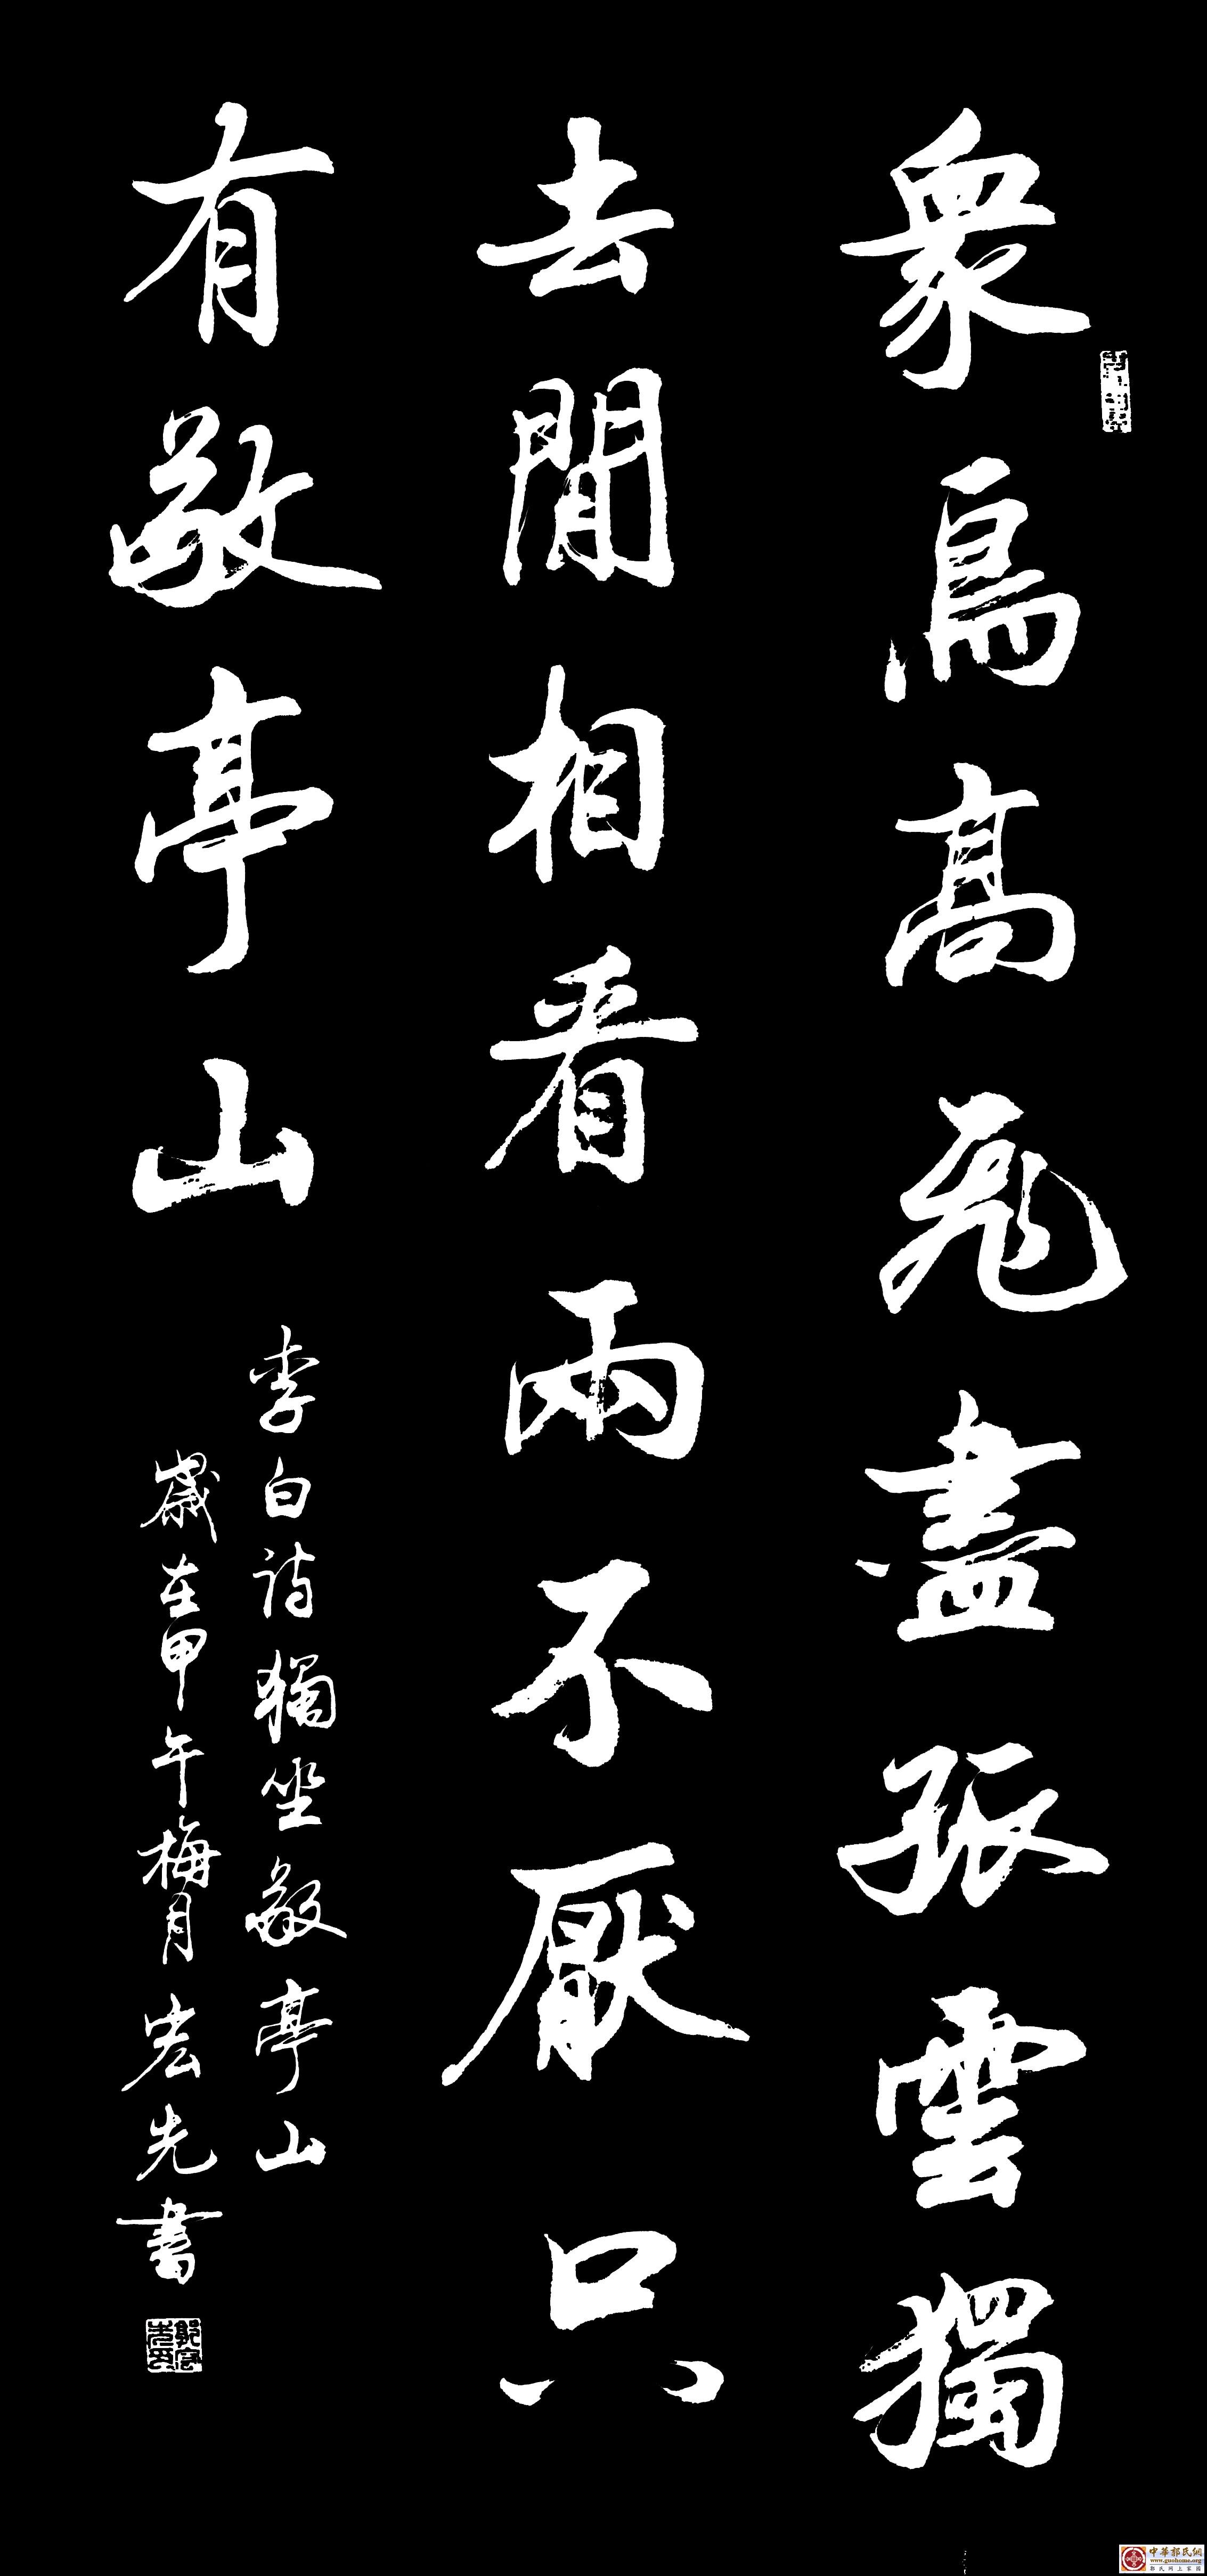 衆鳥高飛盡孤雲獨
去閒相看兩不厭只
有敬亭山
李白詩獨坐敬亭山
歲在甲午梅月宏先書
中華郭氏網
www.guohome.org
郭氏網上家園